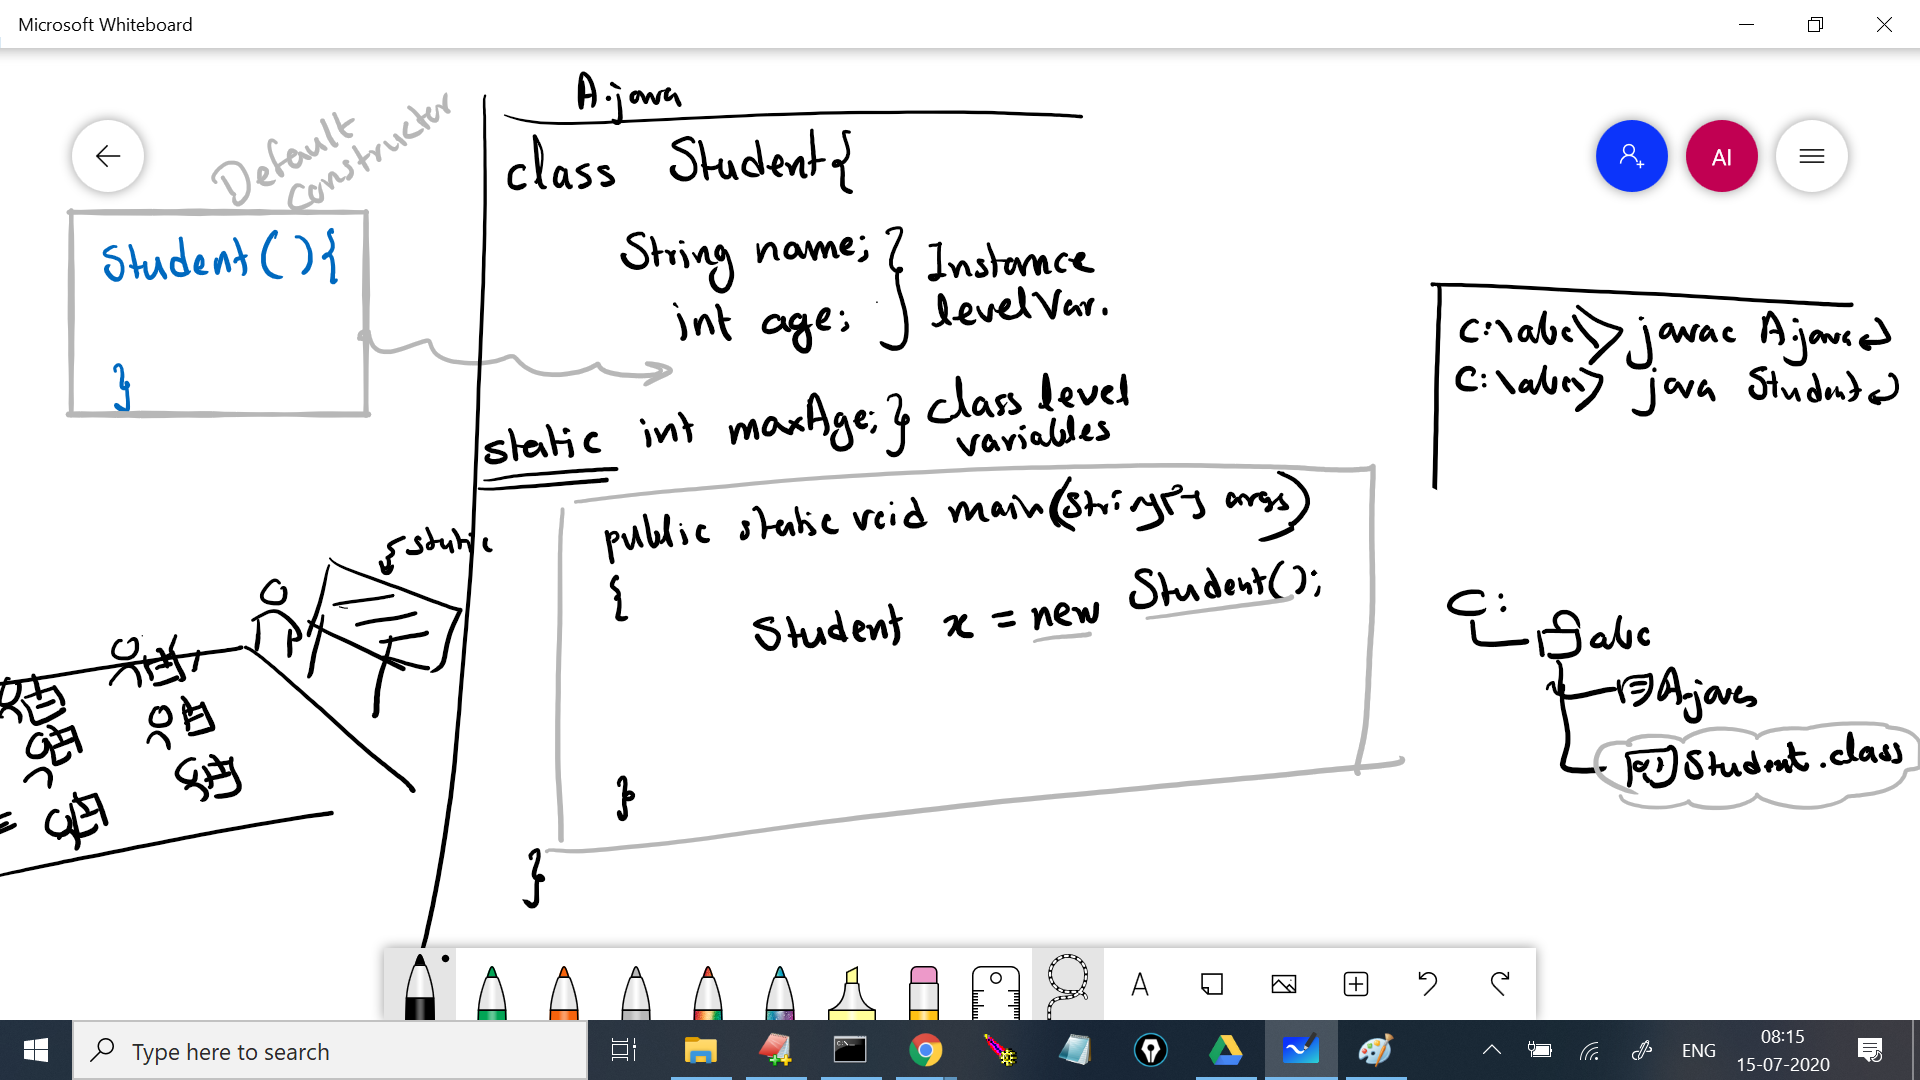 Microsoft Whiteboard
Default
constructor
Student(){
}
A.java
class Student{
String name; } Instance
int age; level Var.
static int maxAge; } class level
variables
public static void main(String[] args)
{
Student x = new Student();
}
}
static
AI
C:\abc\> javac A.java
C:\abc\> java Student
C:
abc
A.java
Student.class
A
Type here to search
ENG
08:15
15-07-2020